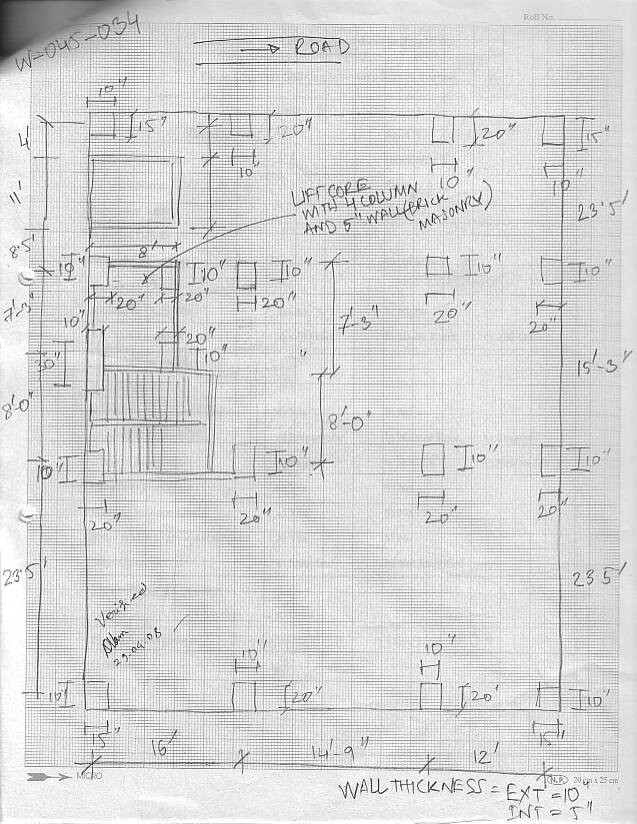 Roll No.
W-045-034
→ ROAD
10"
15"
20"
10"
20"
10"
15"
10"
4'
11'
8.5'
LIFT CORE
WITH 4 COLUMN
AND 5" WALL (BRICK
MASONRY)
23'5'
8'
10"
20"
10"
20"
10"
20"
10"
20"
10"
20"
7'-3"
10"
20"
10"
30"
7'-3"
15'-3"
8'-0"
8'-0"
10"
20"
10"
20"
10"
20"
10"
20"
23.5'
23 5'
Verified
29.04.08
10"
15"
10"
20"
10"
20'
10"
15"
16'
14'-9"
12'
MICRO
N.P. 20 cm x 25 cm
WALL THICKNESS = EXT = 10"
INT = 5"